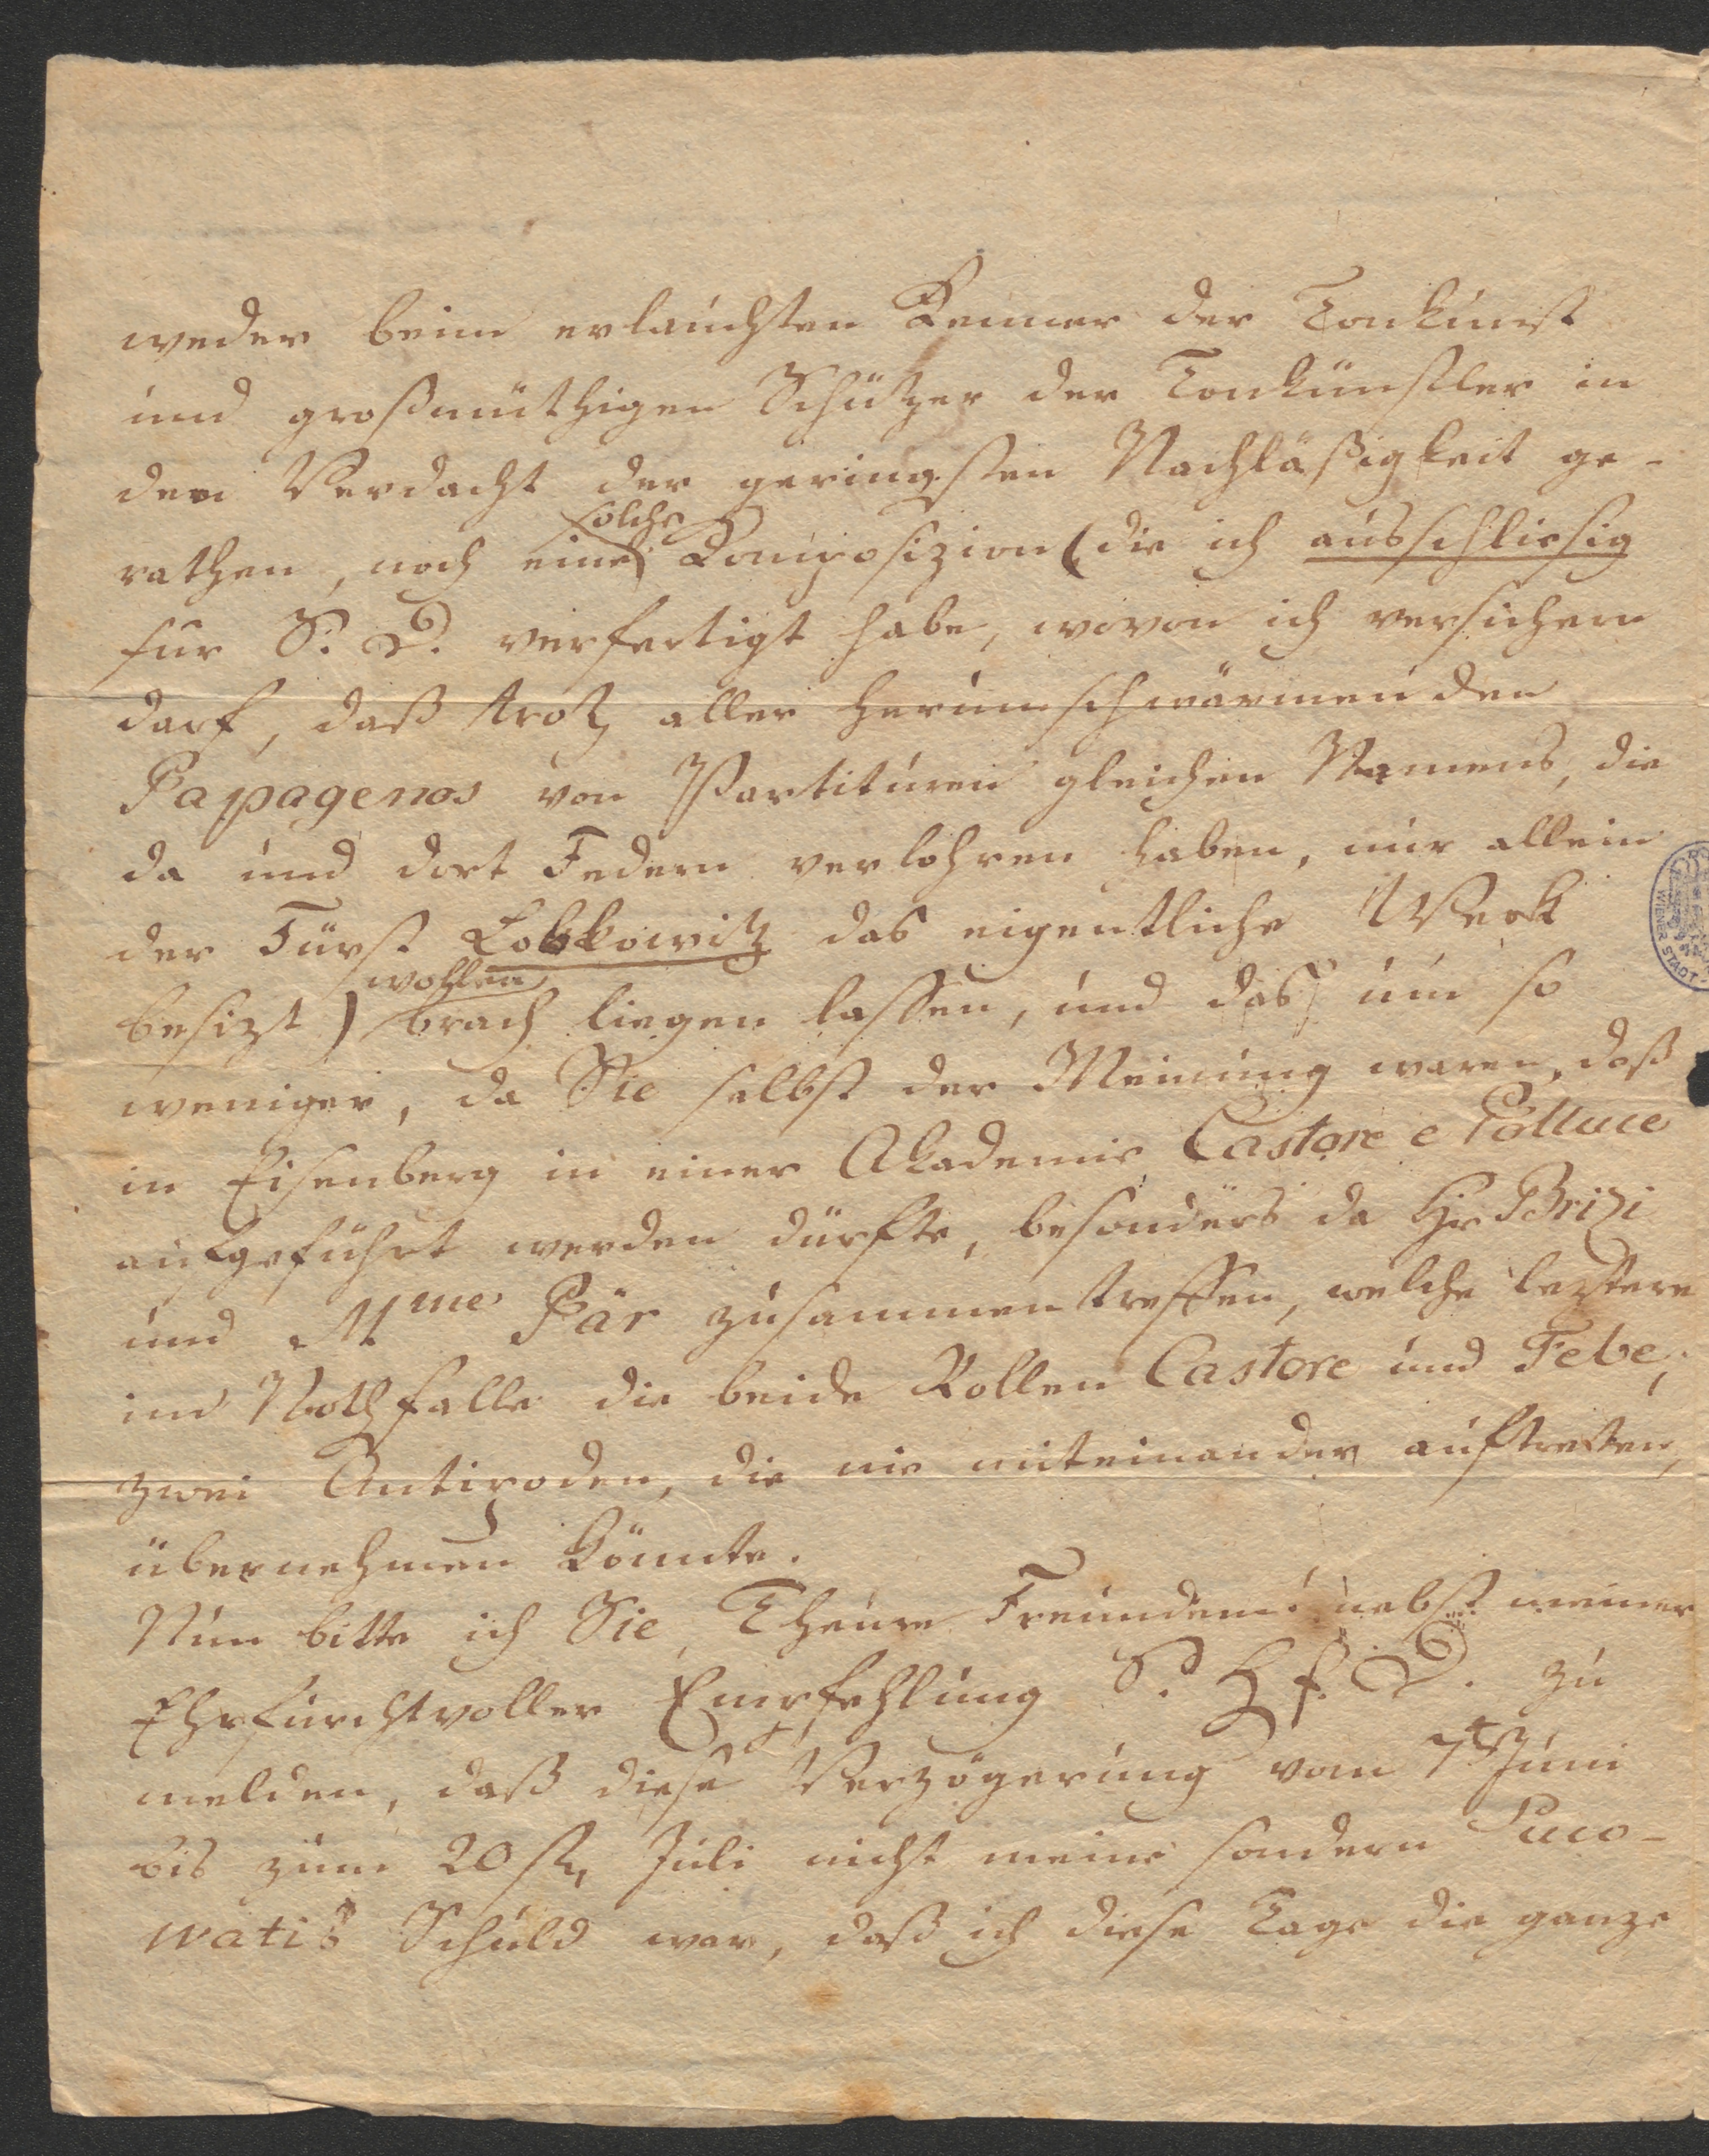 weder beim erlauchten Kenner der Tonkunst
und großmüthigen Schützer der Tonkünstler in
den Verdacht der geringsten Nachläßigkeit ge-
solche
rathen, noch eine Composizion (die ich ausschliesig
für S. D. verfertigt habe, wovon ich versichern
darf, daß troz aller herumschwärmenden
Papagenos von Partituren gleichen Namens, die
da und dort Federn verlohren haben, nur allein
der Fürst Lobkowitz das eigentliche Werk
wollen
besizt) brach liegen lassen, und das um so
weniger, da Sie selbst der Meinung waren, daß
in Eisenberg in einer Akademie Castore e Polluce
aufgeführt werden dürfte, besonders da Hr Brizi
und Mme Pär zusammentreffen, welche leztere
im Nothfalle die beide Rollen Castore und Febe,
zwei Antipoden, die nie miteinander auftretten,
übernehmen könnte.
Nun bitte ich Sie, Theure Freundin! nebst meiner
Ehrfurchtvoller Empfehlung S. H f. D. zu
melden, daß diese Verzögerung vom 7t Juni
bis zum 20stn Juli nicht meine sondern Luco-
watis Schuld war, daß ich diese Tage die ganze
WIENER STADT-